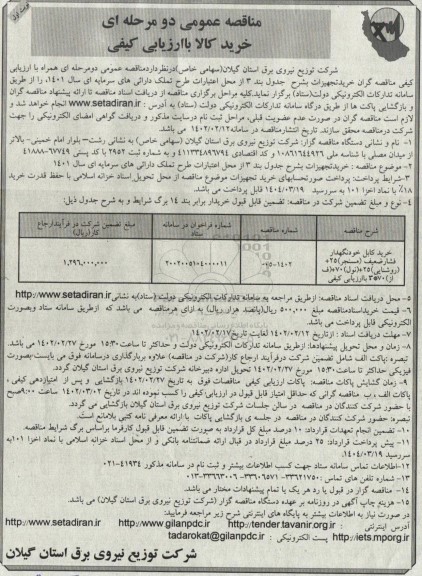 نوبت اول
مناقصه عمومی دو مرحله ای
خرید کالا باارزیابی کیفی
شرکت توزیع نیروی برق استان گیلان(سهامی خاص)درنظرداردمناقصه عمومی دومرحله ای همراه با ارزیابی
کیفی مناقصه گران خریدتجهیزات بشرح جدول بند ۳ از محل اعتبارات طرح تملک دارائی های سرمایه ای سال ۱۴۰۱، را از طریق
سامانه تدارکات الکترونیکی دولت(ستاد) برگزار نماید.کلیه مراحل برگزاری مناقصه از دریافت اسناد مناقصه تا ارائه پیشنهاد مناقصه گران
و بازگشایی پاکت ها از طریق درگاه سامانه تدارکات الکترونیکی دولت (ستاد) به آدرس : www.setadiran.ir انجام خواهد شد و
لازم است مناقصه گران در صورت عدم عضویت قبلی، مراحل ثبت نام درسایت مذکور و دریافت گواهی امضای الکترونیکی را جهت
شرکت درمناقصه محقق سازند. تاریخ انتشارمناقصه در سامانه۱۴۰۲/۰۲/۱۲ می باشد.
۱- نام و نشانی دستگاه مناقصه گزار: شرکت توزیع نیروی برق استان گیلان (سهامی خاص) به نشانی رشت– بلوار امام خمینی– بالاتر
از میدان مصلی با شناسه ملی ۱۰۸۶۱۶۴۴۹۲۶ و کد اقتصادی ۴۱۱۳۳۴۸۹۶۷۹۴ و به شماره ثبت ۲۹۵۲ با کد پستی ۶۷۷۴۹-۴۱۸۸۸
۲- موضوع مناقصه : خریدتجهیزات بشرح جدول بند ۳ از محل اعتبارات طرح تملک دارائی های سرمایه ای سال ۱۴۰۱
۳-شرایط پرداخت: پرداخت صورتحسابهای خرید تجهیزات موضوع مناقصه از محل تحویل اسناد خزانه اسلامی با حفظ قدرت خرید
۱۸٪ با نماد اخزا ۱۰۱ به سررسید ۱۴۰۴/۰۳/۱۹ قابل پرداخت می باشد.
۴- نوع و مبلغ تضمین شرکت در مناقصه: تضمین قابل قبول خریدار برابر بند ۱۴ برگ شرایط و به شرح جدول ذیل:
شرح مناقصه | شماره مناقصه | شماره فراخوان در سامانه ستاد | مبلغ تضمین شرکت در فرآیندارجاع کار(ریال)
خرید کابل خودنگهدار فشارضعیف (مسنجر)۲۵+(روشنایی)۲۵+(نول)۷۰+(فاز)۷۰*۳ باارزیابی کیفی | ۰۵-۱۴۰۲ | ۲۰۰۲۰۰۵۱۰۴۰۰۰۰۱۱ | ۱,۲۹۶,۰۰۰,۰۰۰
۵- محل دریافت اسناد مناقصه: ازطریق مراجعه به سامانه تدارکات الکترونیکی دولت (ستاد)به نشانیhttp://www.setadiran.ir
۶- قیمت خریداسنادمناقصه مبلغ ۵۰۰,۰۰۰ ریال(پانصد هزار ریال) به ازای هرمناقصه می باشد که ازطریق سامانه ستاد وبصورت
الکترونیکی قابل پرداخت می باشد.
۷-مهلت دریافت اسناد : ازتاریخ ۱۴۰۲/۰۲/۱۲ لغایت تاریخ۱۴۰۲/۰۲/۱۷
۸- زمان و محل تحویل پیشنهادها: ازطریق سامانه تدارکات الکترونیکی دولت و حداکثر تا ساعت ۱۵:۳۰ مورخ ۱۴۰۲/۰۲/۲۷ می باشد.
تبصره :پاکت الف شامل تضمین شرکت درفرآیند ارجاع کار(شرکت در مناقصه) علاوه بربارگذاری درسامانه فوق می بایست بصورت
فیزیکی حداکثر تا ساعت۱۵:۳۰ مورخ ۱۴۰۲/۰۲/۲۷ تحویل اداره دبیرخانه شرکت توزیع نیروی برق استان گیلان گردد.
۹- زمان گشایش پاکات مناقصه: پاکات ارزیابی کیفی مناقصات فوق به تاریخ ۱۴۰۲/۰۲/۲۷ بازگشایی و پس از امتیازدهی کیفی ،
پاکات الف ، ب مناقصه گرانی که حداقل امتیاز قابل قبول در ارزیابی کیفی را کسب نموده اند در تاریخ ۱۴۰۲/۰۳/۰۲ ساعت ۹:۰۰صبح
با حضور شرکت کنندگان در مناقصه در سالن جلسات شرکت توزیع نیروی برق استان گیلان بازگشایی می گردد.
تبصره: حضور شرکت کنندگان در مناقصه در جلسه ی بازگشایی پاکات با ارائه معرفی نامه کتبی بلامانع است.
۱۰- تضمین انجام تعهدات قرارداد: ۱۰ درصد مبلغ کل قرارداد به صورت تضمین قابل قبول کارفرما براساس برگ شرایط مناقصه.
۱۱- پیش پرداخت قرارداد: ۲۵ درصد مبلغ قرارداد در قبال ارائه ضمانتنامه بانکی و از محل اسناد خزانه اسلامی با نماد اخزا ۱۰۱به
سررسید ۱۴۰۴/۰۳/۱۹.
۱۲-اطلاعات تماس سامانه ستاد جهت کسب اطلاعات بیشتر و ثبت نام در سامانه مذکور ۴۱۹۳۴-۰۲۱
۱۳- شماره تلفن های تماس :۳۳۳۲۱۷۵۰– ۳۳۳۰۶۵۷۱- ۳۳۳۶۳۰۰۶-۰۱۳
۱۴- مناقصه گزار در قبول یا رد هر یک یا تمام پیشنهادات مختار می باشد.
۱۵- هزینه چاپ آگهی در روزنامه بر عهده دستگاه مناقصه گزار (شرکت توزیع نیروی برق استان گیلان) می باشد.
در صورت نیاز به اطلاعات بیشتر به پایگاه های اینترنتی شرح زیر مراجعه فرمایید:
آدرس اینترنتی : http://tender.tavanir.org.ir http://www.gilanpdc.ir http://www.setadiran.ir
http://iets.mporg.ir پست الکترونیکی : tadarokat@gilanpdc.ir
شرکت توزیع نیروی برق استان گیلان